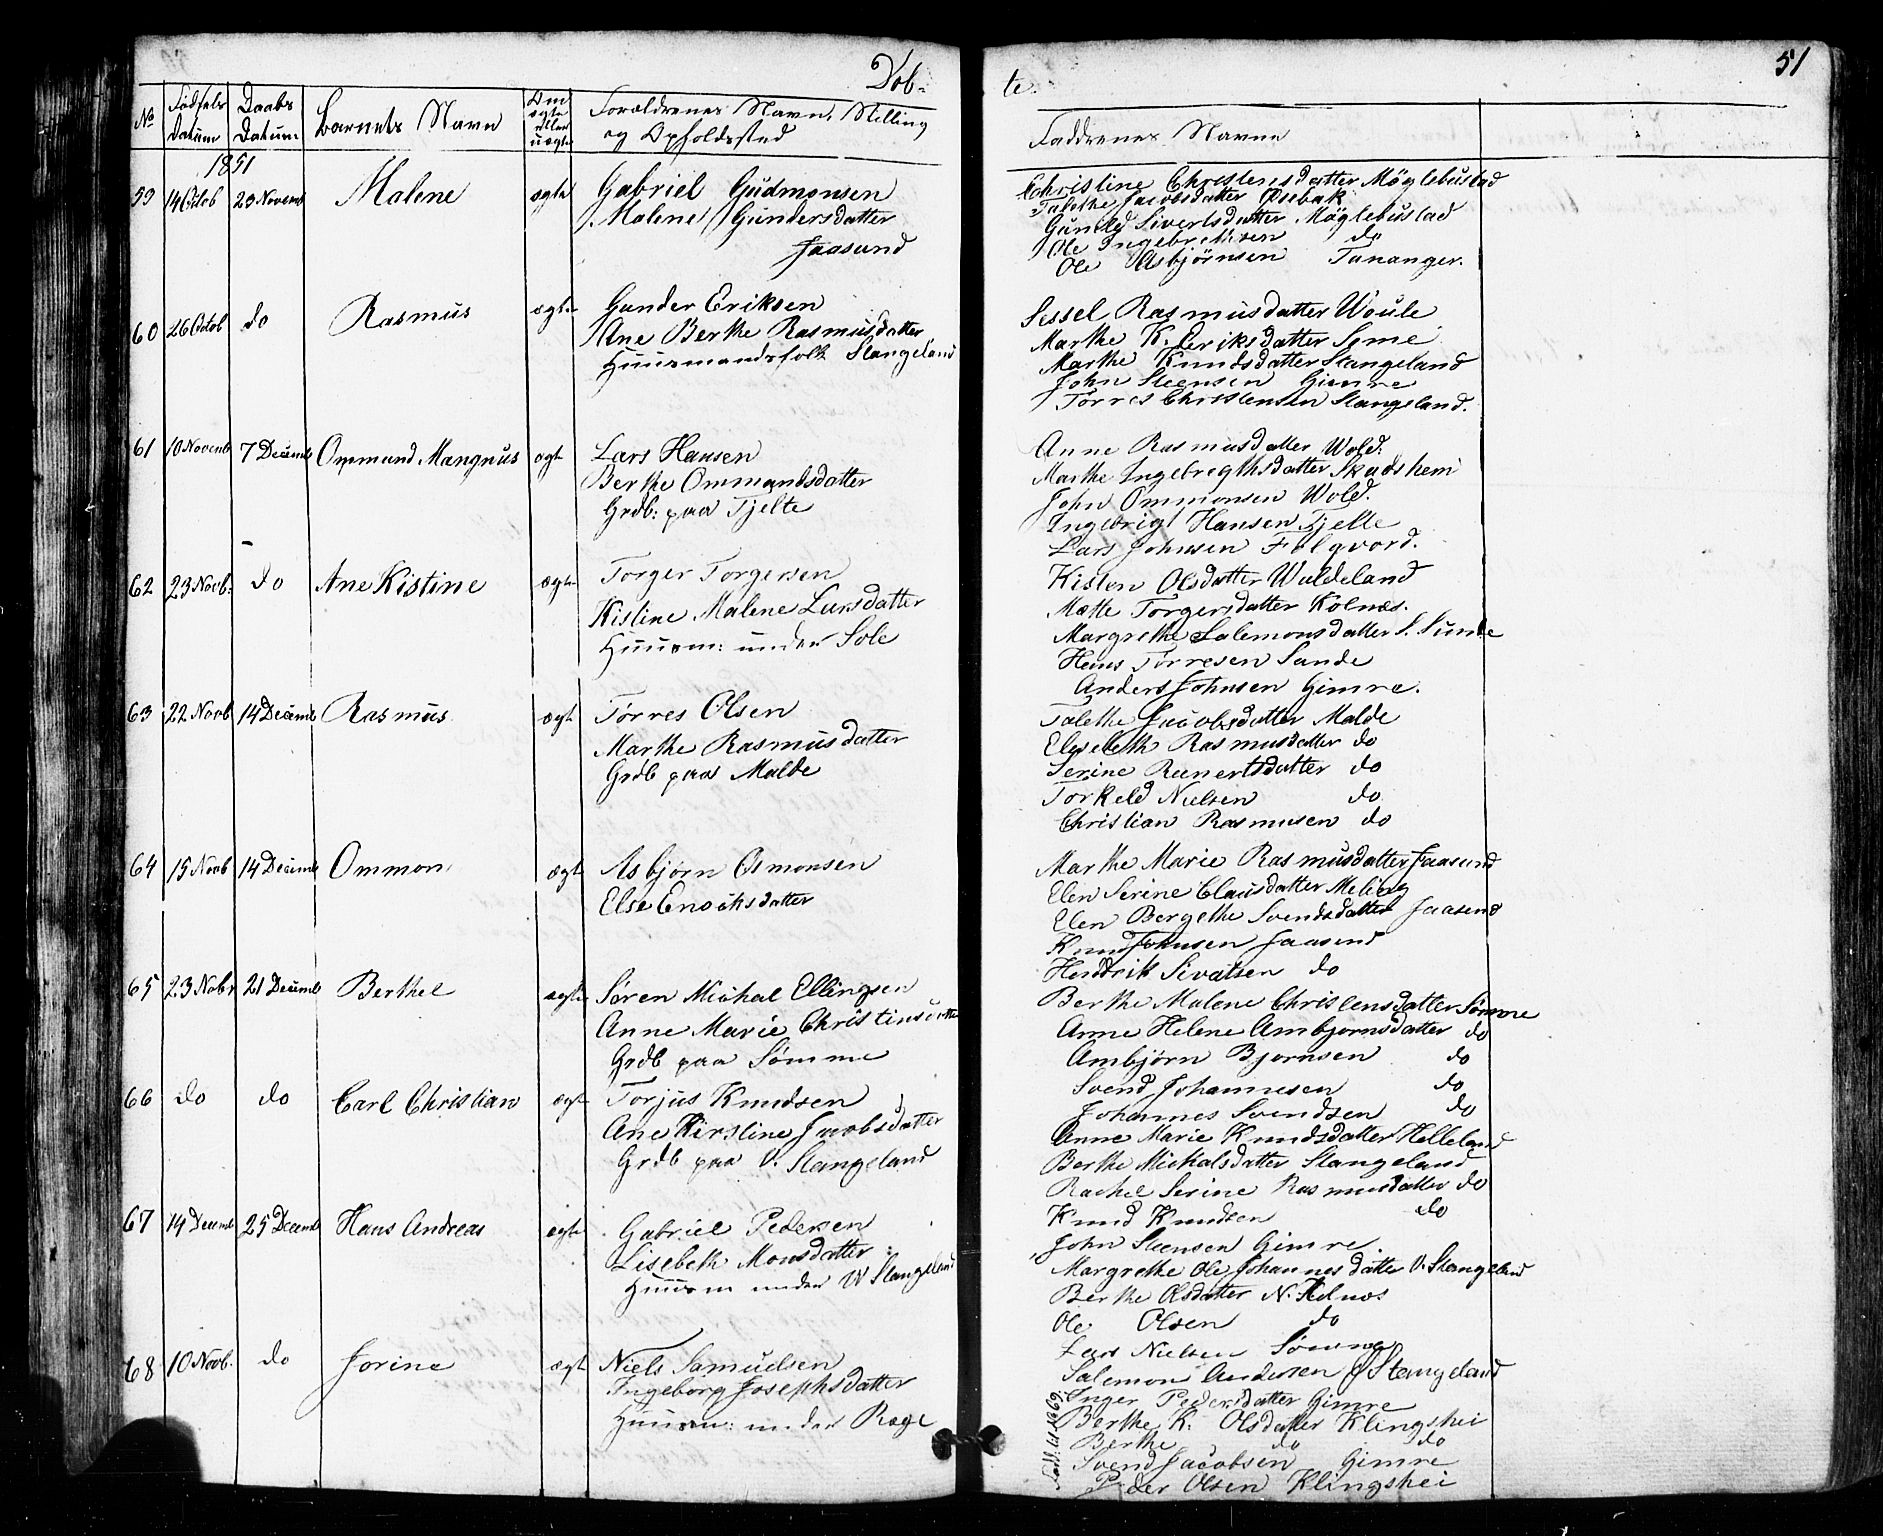 Dob-
te
51
No
Fødsels Datum
Daabs Datum
Barnets Navn
Om ægte eller uægte
Forældrenes Navn, Stilling og Opholdssted
Faddrenes Navne
1851
59 14 Octob 23 Novemb Malene ægte Gabriel Gudmonsen
Malene Gundersdatter
Jaasund
Christine Christensdatter Møglebustad
Talethe Jacobsdatter Risebak
Gunild Sivertsdatter Møglebustad
Ole Ingebrethsen do
Ole Asbjørnsen Tananger.
60 26 Octob do Rasmus ægte Gunder Eriksen
Ane Berthe Rasmusdatter
Huusmandsfolk Stangeland
Sissel Rasmusdatter Woule
Marthe K. Eriksdatter Søme
Marthe Knudsdatter Stangeland
John Steensen Gimre
Tørres Christensen Stangeland.
61 10 Novemb 7 Decemb Ommund Mangnus ægt Lars Hansen
Berthe Ommundsdatter
Grdb: paa Tjelte
Anne Rasmusdatter Wold.
Marthe Ingebregthsdatter Skadshem
John Ommonsen Wold.
Ingebrigt Hansen Tjelte
Lars Johnsen Følgvord.
62 23 Novb: do Ane Kistine ægte Torger Torgersen
Kistine Malene Larsdatter
Huusm: under Sole
Kisten Olsdatter Waldeland
Mætte Torgersdatter Kolnæs.
Margrethe Salemonsdatter S. Sunde
Hans Tørresen Sande
Anders Johnsen Gimre.
63 22 Novb 14 Decemb Rasmus ægt Tørres Olsen
Marthe Rasmusdatter
Grdb paa Malde
Talethe Jacobsdatter Malde
Elesebeth Rasmusdatter do
Serine Reinertsdatter do
Torkeld Nielsen do
Christian Rasmusen do
64 15 Novb 14 Decemb Ommon ægt Asbjørn Osmonsen
Else Enochsdatter
Marthe Marie Rasmusdatter Jaasund
Elen Serine Clausdatter Meling
Elen Bergethe Svendsdatter Jaasund
Knud Johnsen Jaasund
Hendrik Sivatsen do
65 23 Nobr 21 Decemb Berthel ægte Søren Michal Ellingsen
Anne Marie Christinsdatter
Grdb paa Sømme
Berthe Malene Christensdatter Sømme
Anne Helene Ambjornsdatter do
Ambjørn Bjornsen do
Svend Johannesen do
Johannes Svendsen do
66 do do Carl Christian ægt Torjus Knudsen
Ane Kirstine Jacobsdatter
Grdb paa V. Stangeland
Anne Marie Knudsdatter Helleland
Berthe Michalsdatter Stangeland
Rachel Serine Rasmusdatter do
Knud Knudsen do
John Steensen Gimre
67 14 Decemb 25 Decemb Hans Andreas ægte Gabriel Pedersen
Lisebeth Monsdatter
Huusm under W Stangeland
Margrethe Ole Johannesdatter V. Stangeland
Berthe Olsdatter N. Kolnæs
Ole Olsen do
Lars Nielsen Sømme
Salemon Andersen Stangeland
68 10 Novb. do Jorine ægt Niels Samuelsen
Ingeborg Josephsdatter
Huusm: under Ræge
Inger Pedersdatter Gimre
Berthe K. Olsdatter Klingshei
Berthe do do
Svend Jacobsen Gimre
Peder Olsen Klingshei